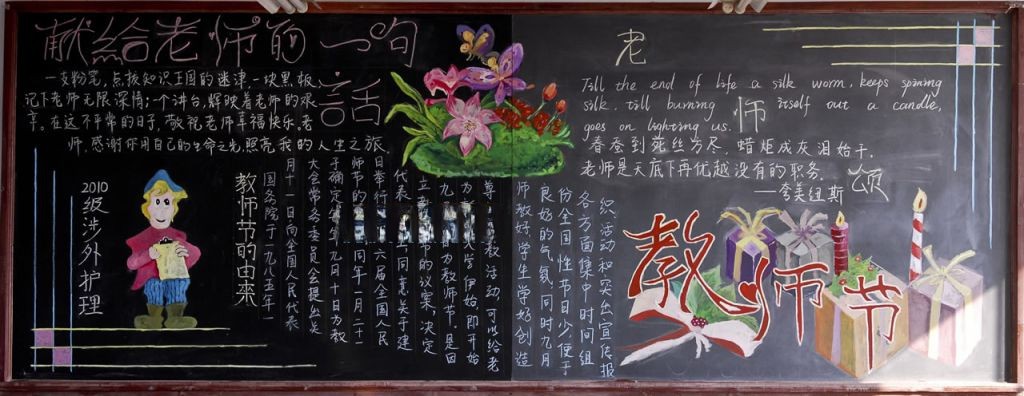 献给老师的一句
话
一支粉笔,点拨知识王国的迷津;一块黑板,
记下老师无限深情;一个讲台,辉映着老师的艰
辛。在这不平常的日子,敬祝老师幸福快乐。老
师,感谢你用自己的生命之光,照亮我的人生之旅。
2010级涉外护理
教师节的由来
国务院于一九八五年一
月十一日向全国人民代表
大会常务委员会提出关
于确定每年九月十日为教
师节的 同年一月二十
日举行 六届全国人民
代表 同意关于建
立 节的议案,决定
九 为教师节,是因
为 大学伊始即开始
尊 教活动,可以给老
师教好、学生学好创造
良好的气氛。同时九月
份全国性节日少,便于
各方面集中时间组
织活动和突出宣传报
老
师
颂
Till the end of life a silk worm, keeps spining
silk. till burning itself out a candle,
goes on lighting us.
春蚕到死丝方尽,蜡炬成灰泪始干.
老师是天底下再优越没有的职务.
——夸美纽斯
教师节